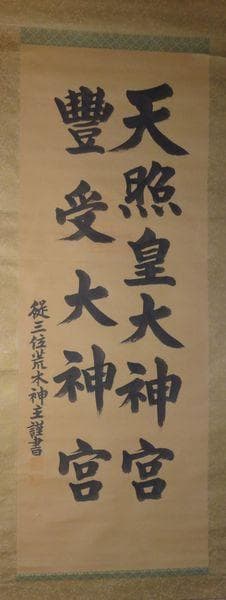 天照皇大神宮
豐受大神宮
從三位荒木神主謹書